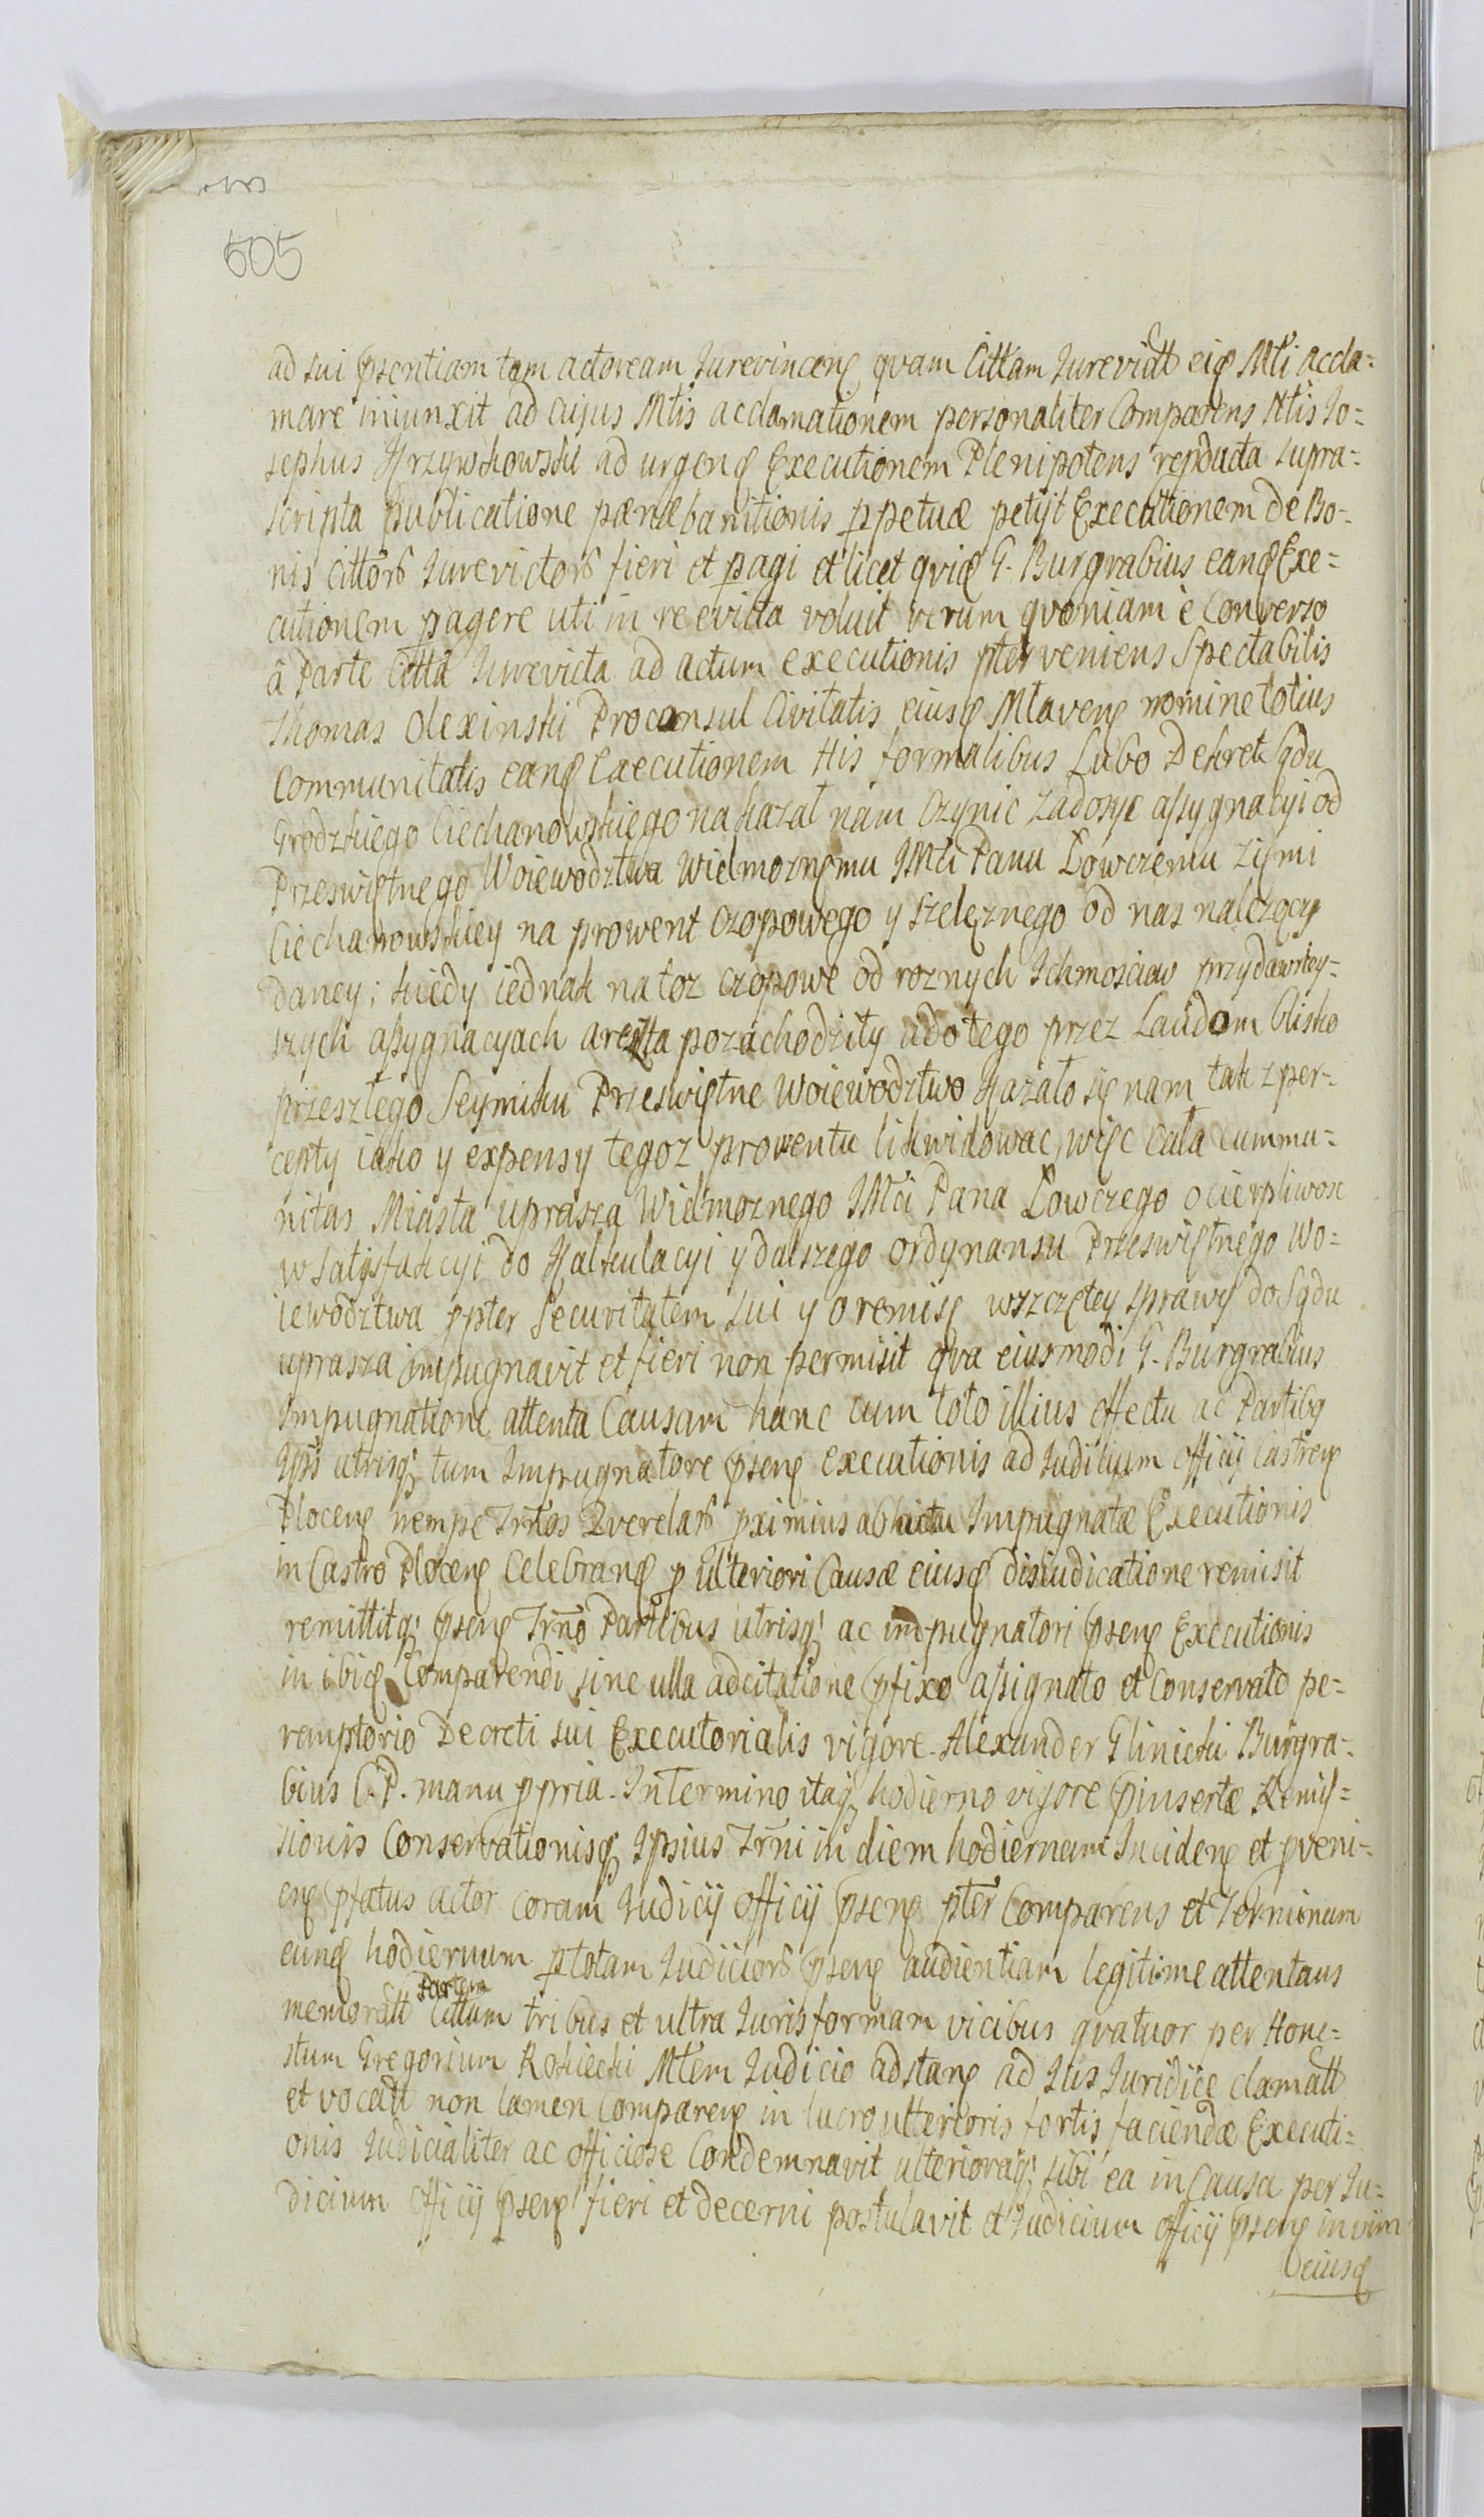 505
ad sui psentiam tam actoream Jurevincenę quam Cittam Jurevictt eię Mli accla=
mare iniunxit ad cujus Mlis acclamationem personaliter Comparens Nlis Jo=
sephus Krzywkowski ad urgenę Executionem Plenipotens repducta supra=
scripta publicatione pænæ banitionis ppetuæ petijt Executionem de Bo=
nis cittorū Jurevictorū fieri et pagi et licet quię G. Burgrabius eanę Exe=
cutionem pagere uti in re evicta voluit verum quoniam è Converso
â Parte Citta Jurevicta ad actum executionis pter veniens Spectabilis
Thomas Olexinski Proconsul Civitatis eiusę Mlavenę nomine totius
Communitatis eanę Executionem His formalibus Lubo Dekret Sądu
Grodzkiego Ciechanowskiego nakazał nam Czynic zadosyc assygnacyi od
Przeswiętnego Woiewodztwa Wielmoznemu JMci Panu Łowczemu Ziemi
Ciechanowskiey na prowent czopowego y szelęznego od nas nalezący
daney; kiedy iednak na toz czopowe od roznych Ichmosciow przy dawniey=
szych assygnacyach areszta pozachodziły a do tego przez Laudom blisko
przeszłego Seymiku Przeswiętne Woiewodztwo Kazało się nam tak z per=
cepty iako y expensy tegoz prowentu likwidowac, więc cała cummu=
nitas Miasta uprasza Wielmoznego JMci Pana Łowczego o cierpliwosc
w satysfakcyi do Kalkulacyi y dalszego ordynansu Przeswiętnego Wo=
iewodztwa ppter Securitatem sui y o remisę wszczętey sprawy do Sądu
uprasza impugnavit et fieri non permisit qva eiusmodi G. Burgrabius
Impugnatione attenta Causam hanc cum toto illius effectu ac Partibg
Ipis utrisq; tum Impugnatore psenę executionis ad Judicium officij Castrenę
Plocenę nempe Trnos Querelarū pximius ab actu Impugnatæ Executionis
in Castro Plocenę Celebranę p ulteriori Causæ eiusę disiudicatione remisit
remittitq; psenę Trno Partibus utrisq; ac impugnatori psenę Executionis
in ibię Comparendi sine ulla adcitatione pfixo assignato et Conservato pe=
remptorio Decreti sui Executorialis vigore. Alexander Glinicki Burgra=
bius C. P. manu ppria. In Termino itaq; hodierno vigore pinsertæ Remis=
sionis Conservationisq; Ipsius Trni in diem hodiernam Incidenę et pveni=
enę pfatus actor coram Judicij officij psenę pter Comparens et Terminum
eunę hodiernum ptotam Judiciorū psenę audientiam legitime attentans
Partem
memoratt Cittam tribus et ultra Juris formam vicibus quatuor per Hone=
stum Gregorium Rokicki Mlem Judicio adstanę ad Jus Juridice clamatt
et vocatt non tamen Comparenę in lucro ulterioris fortis faciendæ Executi=
onis Judicialiter ac officiose Condemnavit ulterioraq; sibi ea in Causa per Ju=
dicium officij psenę fieri et decerni postulavit et Judicium officij psenę in vim
eiusę